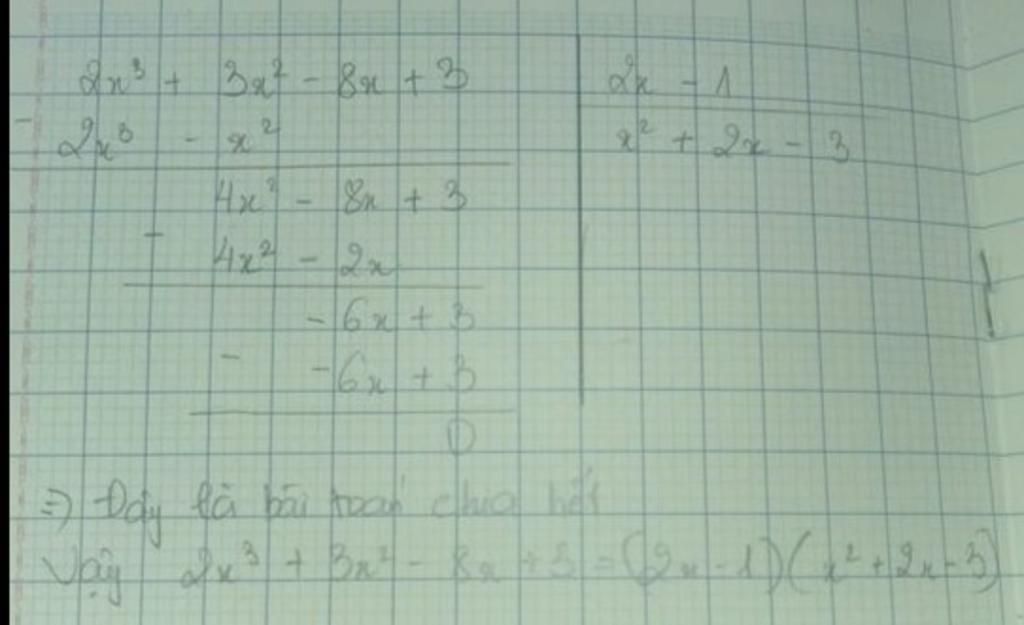 2x³ + 3x² - 8x + 3 | 2x - 1
- 2x³ - x² | x² + 2x - 3
4x² - 8x + 3
- 4x² - 2x
- 6x + 3
- - 6x + 3
0
=> Đây là bài toán chia hết
Vậy 2x³ + 3x² - 8x + 3 = (2x - 1)(x² + 2x - 3)